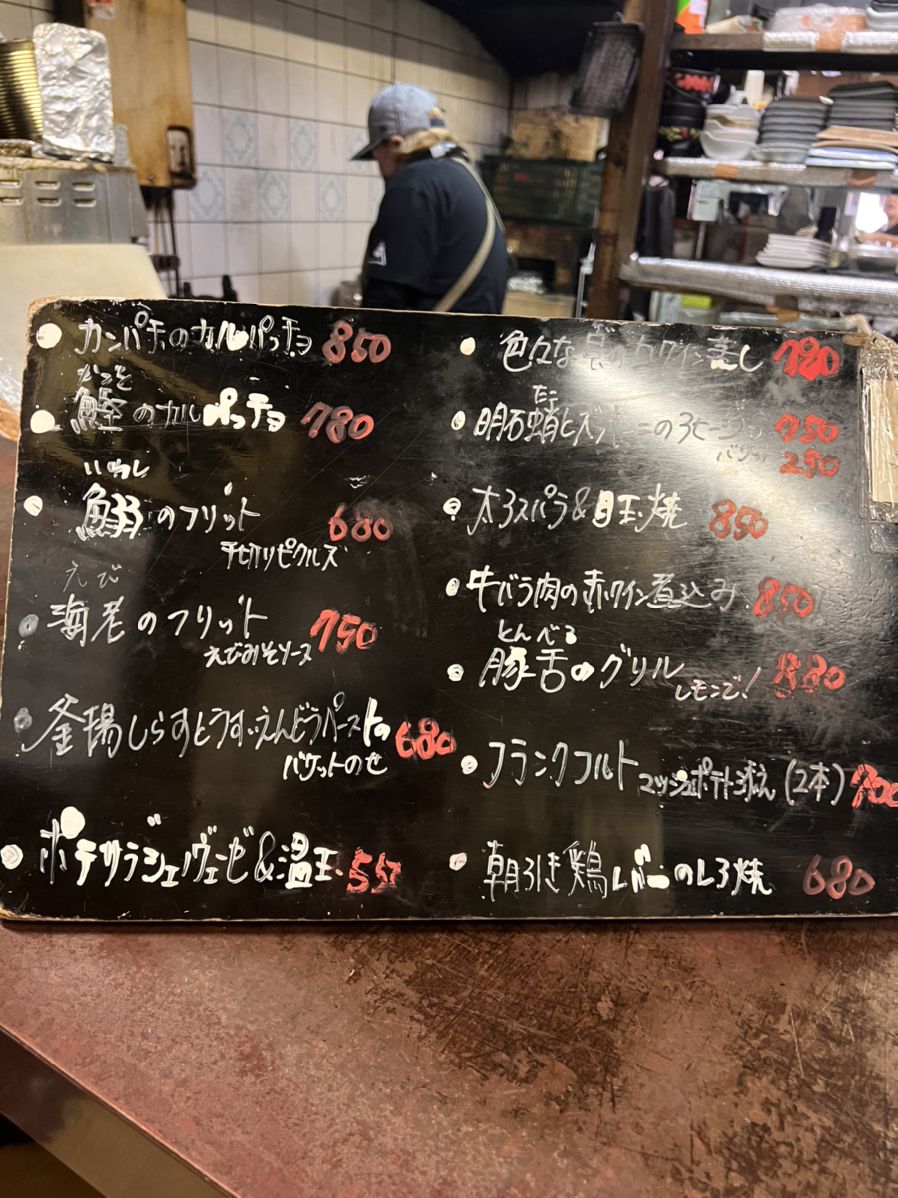 カンパチのカルパッチョ 850
かつを
鰹のカルパッチョ 780
いわし
鰯のフリット 680
千切りピクルス
えび
海老のフリット 750
えびみそソース
釜揚しらすとうすいえんどうペーストの 680
バケットのせ
ポテサラジェノヴェーゼ&温玉 550
色々な貝の白ワイン蒸し 780
たこ
明石蛸とズッキーニの 750
バケット 250
太アスパラ&目玉焼 850
牛バラ肉の赤ワイン煮込み 850
とんべろ
豚舌のグリル レモンで! 880
フランクフルト マッシュポテト添え (2本) 700
朝引き鶏レバーのレア焼 680